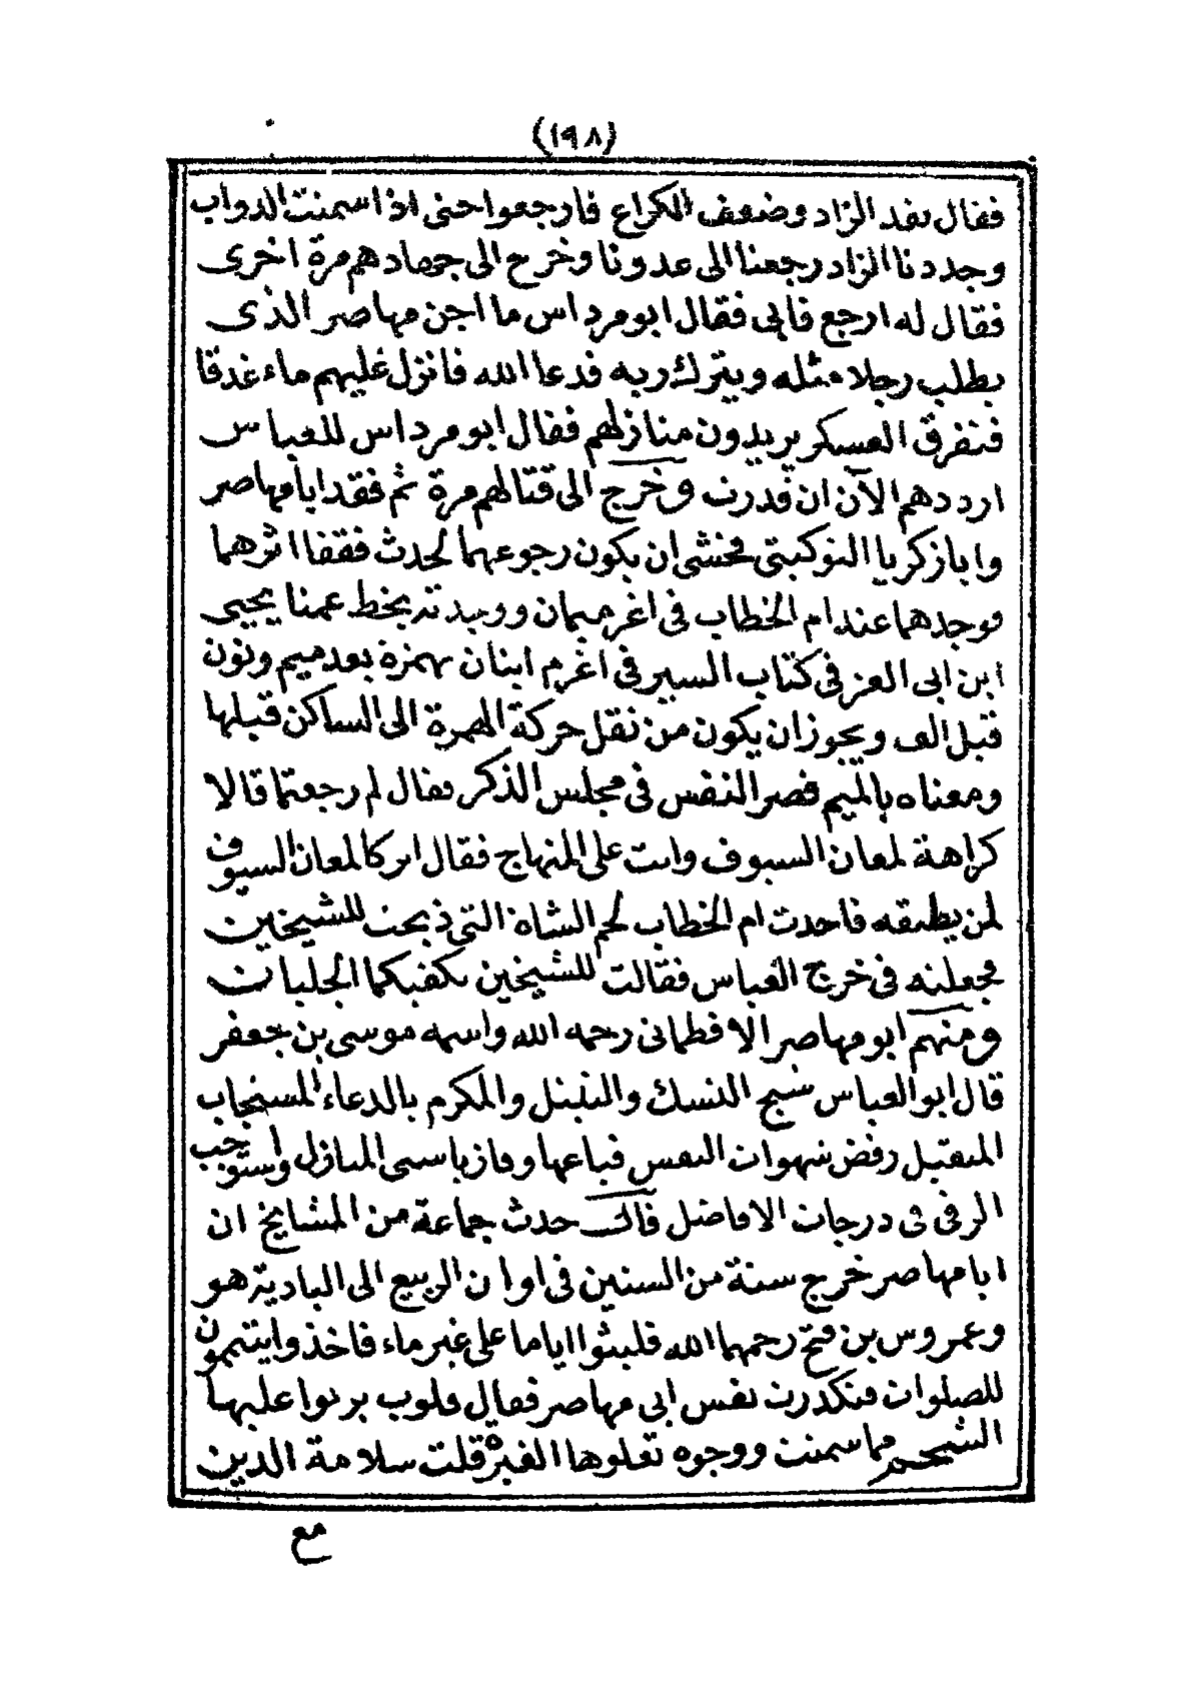 (١٩٨)
فقال نفد الزاد وضعف الكراع فارجعوا حتى اذا اسمنت الدواب
وجددنا الزاد رجعنا الى عدونا وخرج الى جهادهم مرة اخرى
فقال له ارجع فابى فقال ابو مرداس ما اجن مهاصر الذى
يطلب رجلا مثله ويترك ربه فدعا الله فانزل عليهم ماء غدقا
فتفرق العسكر يريدون منازلهم فقال ابو مرداس للعباس
ارددهم الآن ان قدرت وخرج الى قتالهم مرة ثم فقد ابا مهاصر
وابا زكريا التوكيتى فخشى ان يكون رجوعهما لحدث فقفا اثرهما
فوجدهما عند ام الخطاب فى اغرميمان ووجدته بخط عمنا يحيى
ابن ابى العز فى كتاب السير فى اغرم اينان بهمزة بعد ميم ونون
قبل الف ويجوز ان يكون من نقل حركة الهمزة الى الساكن قبلها
ومعناه بالميم قصر النفس فى مجلس الذكر فقال لم رجعتما قالا
كراهة لمعان السيوف وانت على المنهاج فقال اتركا لمعان السيوف
لمن يطيقه فاخذت ام الخطاب لحم الشاة التى ذبحت للشيخين
فجعلته فى خرج العباس فقالت للشيخين يكفيكما الجلبات
ومنهم ابو مهاصر الافطمانى رحمه الله واسمه موسى بن جعفر
قال ابو العباس شيخ النسك والتبتل والمكرم بالدعاء المستجاب
المتقبل رفض شهوات النفس فباعها وفاز باسنى المنازل واستوجب
الرقى فى درجات الافاضل قال حدث جماعة من المشايخ ان
ابا مهاصر خرج سنة من السنين فى اوان الربيع الى البادية هو
وعمروس بن فتح رحمهما الله فلبثوا اياما على غير ماء فاخذوا يتيممون
للصلوات فتكدرت نفس ابى مهاصر فقال قلوب يربوا عليها
الشحم مما سمنت ووجوه تعلوها الغبرة قلت سلامة الدين
مع